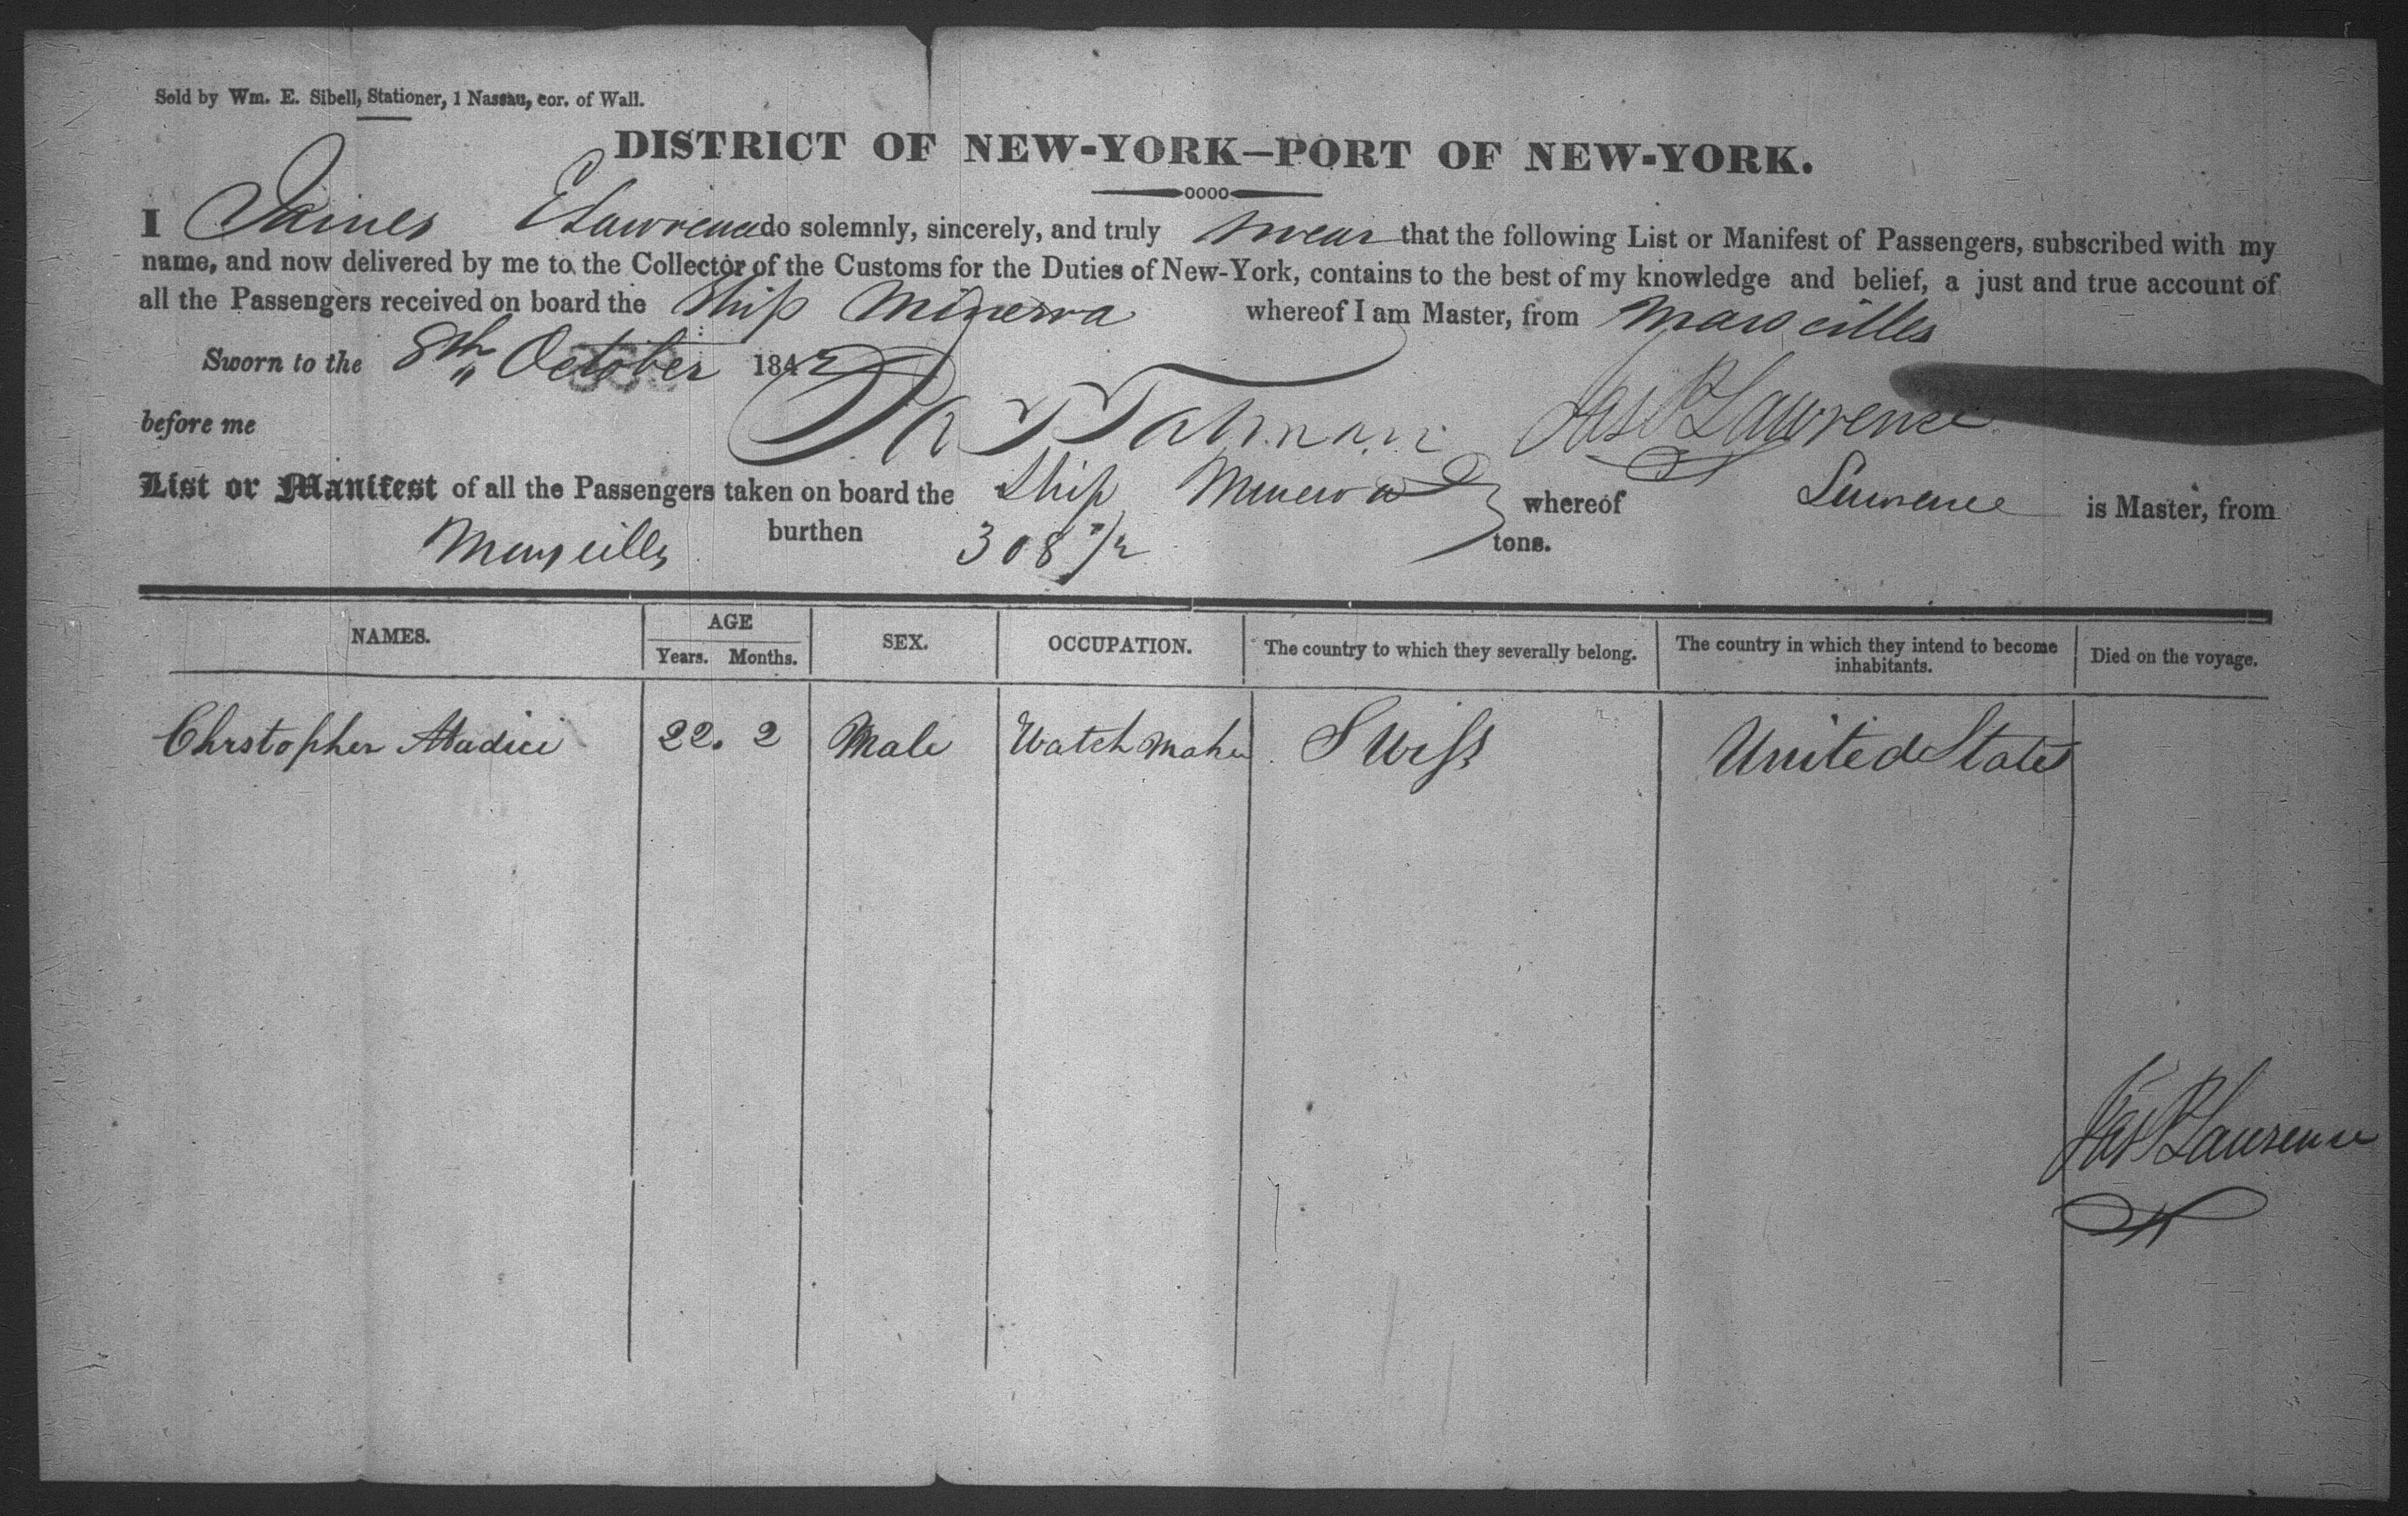 Sold by Wm. E. Sibell, Stationer, 1 Nassau, cor. of Wall.
DISTRICT OF NEW-YORK—PORT OF NEW-YORK.
I James Lawrence do solemnly, sincerely, and truly swear that the following List or Manifest of Passengers, subscribed with my
name, and now delivered by me to the Collector of the Customs for the Duties of New-York, contains to the best of my knowledge and belief, a just and true account of
all the Passengers received on board the Ship Minerva whereof I am Master, from Marseilles
Sworn to the 8th October 1842
before me Jas Lawrence
List or Manifest of all the Passengers taken on board the Ship Minerva whereof Lawrence is Master, from
Marseilles burthen 308 tons.
NAMES. AGE Years. Months. SEX. OCCUPATION. The country to which they severally belong. The country in which they intend to become inhabitants. Died on the voyage.
Chrstopher 22. 2 Male Watch Maker Swiss United States
Jas Lawrence